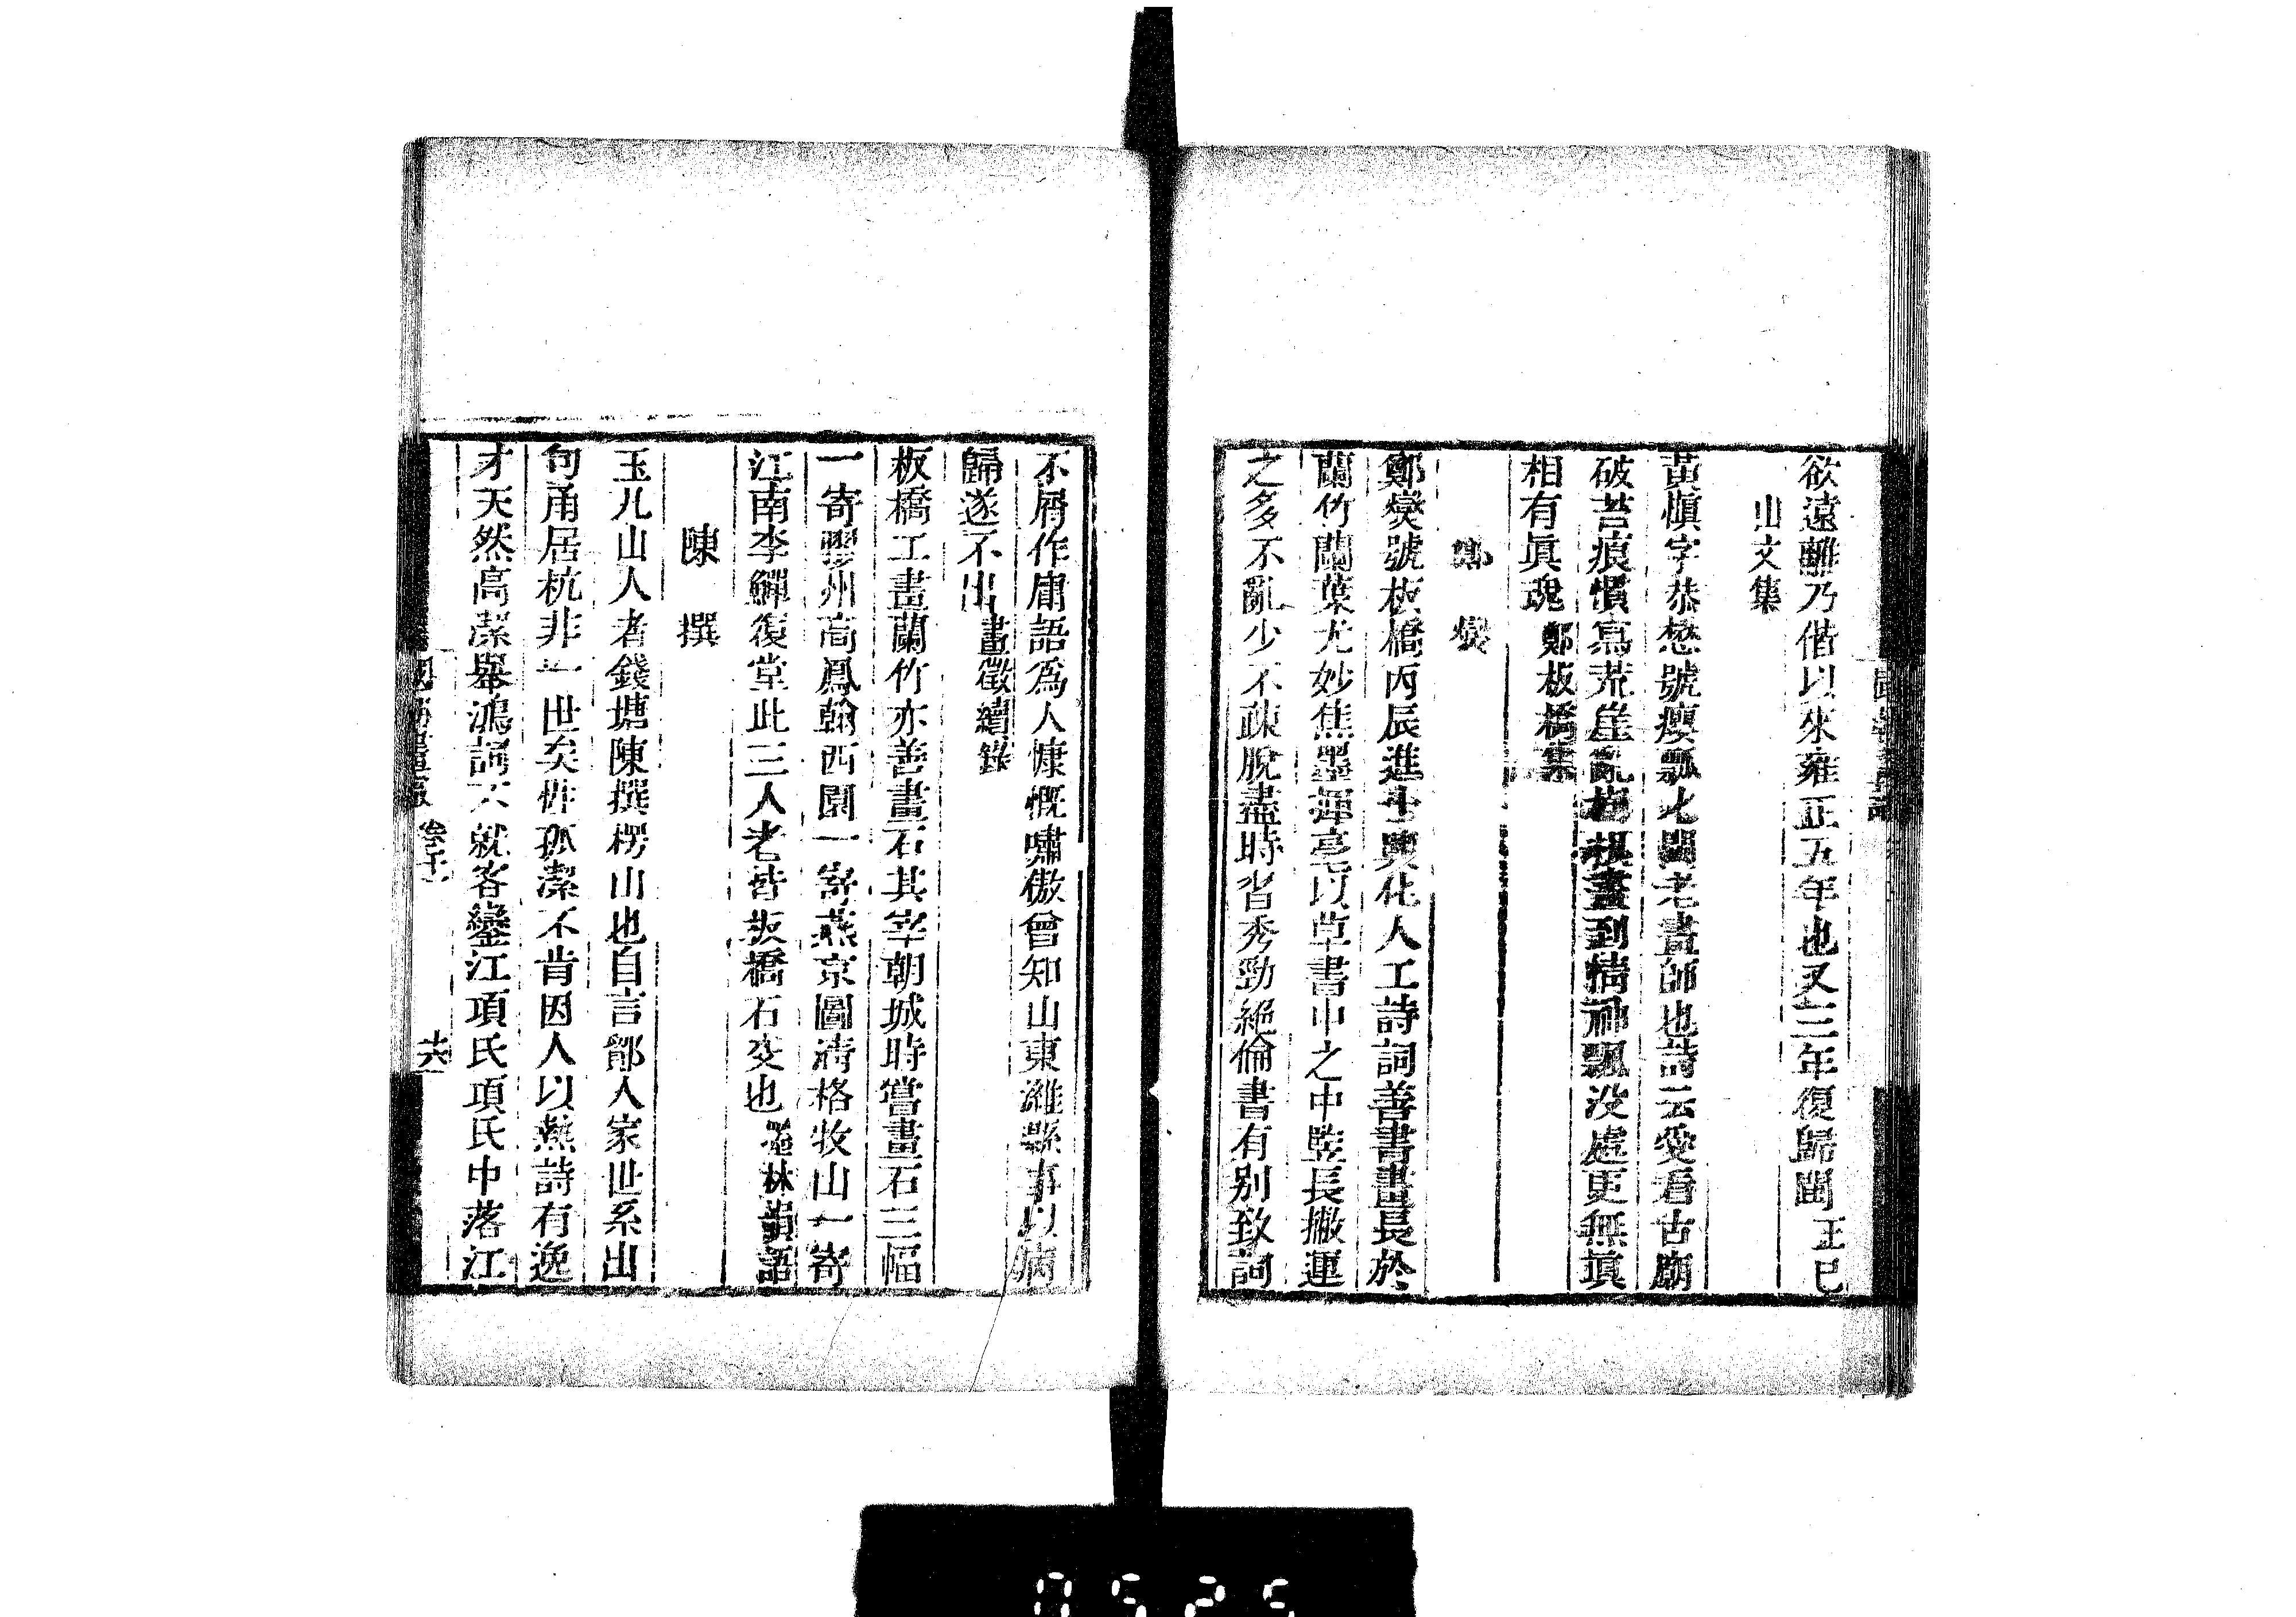 欲遠離乃偕以來雍正五年也又三年復歸閩王己
山文集
黃愼字恭懋號癭瓢七閩老畫師也詩云愛看古廟
破苔痕慣寫荒崖亂樹根畫到情神飄没處更無眞
相有眞魂鄭板橋集
鄭燮
鄭燮號板橋丙辰進士興化人工詩詞善書畫長於
蘭竹蘭葉尤妙焦墨揮毫以草書中之中豎長撇運
之多不亂少不疎脫盡時習秀勁絕倫書有别致詞
不屑作庸語爲人慷慨嘯傲曾知山東濰縣事以病
歸遂不出畫徵續錄
板橋工畫蘭竹亦善畫石其宰朝城時嘗畫石三幅
一寄膠州高鳳翰西園一寄燕京圖淸格牧山一寄
江南李鱓復堂此三人者皆板橋石交也墨林韻語
陳撰
玉几山人者錢塘陳撰楞山也自言鄞人家世系出
句甬居杭非一世矣性孤潔不肯因人以熱詩有逸
才天然高潔舉鴻詞不就客鑾江項氏項氏中落江
十六
0525